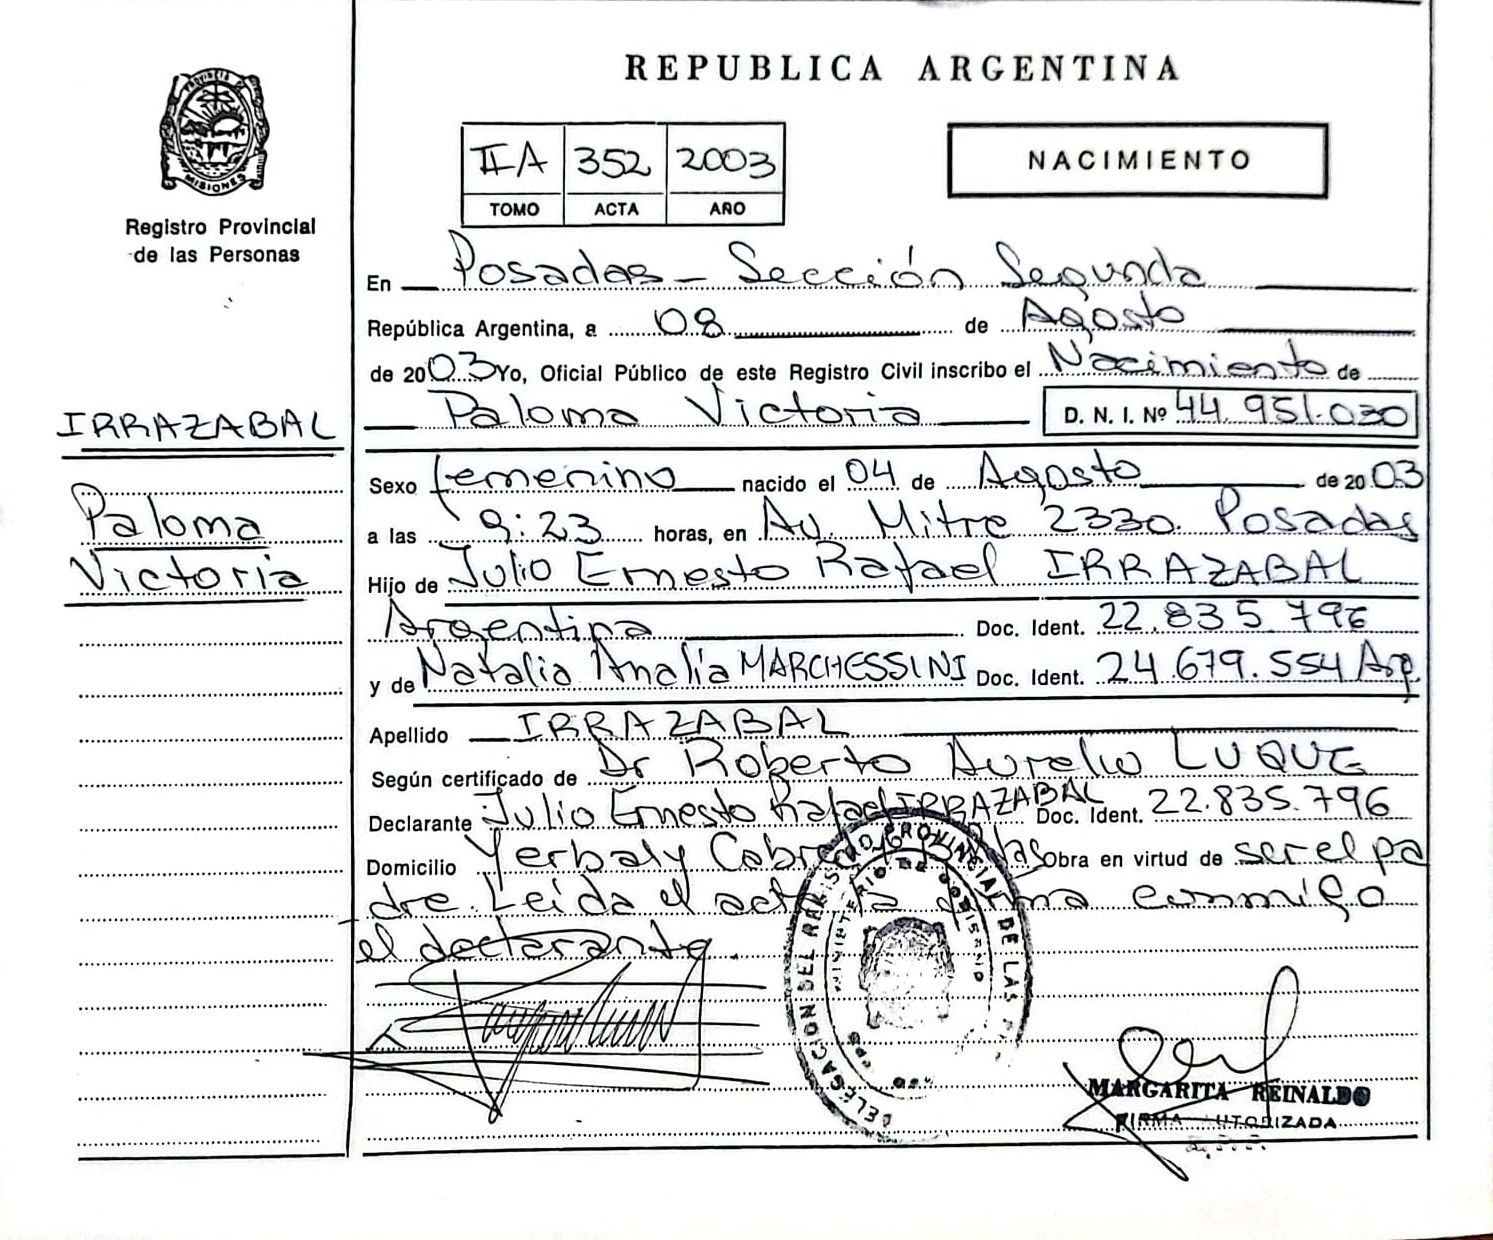 REPUBLICA ARGENTINA
PROVINCIA
MISIONES
Registro Provincial
de las Personas
IIA 352 2003
TOMO ACTA AÑO
NACIMIENTO
En Posadas - Sección Segunda
República Argentina, a 08 de Agosto
de 2003 Yo, Oficial Público de este Registro Civil inscribo el Nacimiento de
Paloma Victoria D. N. I. Nº 44.951.030
IRRAZABAL
Paloma
Victoria
Sexo femenino nacido el 04 de Agosto de 2003
a las 9:23 horas, en Av. Mitre 2330. Posadas
Hijo de Julio Ernesto Rafael IRRAZABAL
Argentina Doc. Ident. 22.835.796
y de Natalia Analía MARCHESSINI Doc. Ident. 24.679.554 Arg.
Apellido IRRAZABAL
Según certificado de Dr Roberto Aurelio LUQUE
Declarante Julio Ernesto Rafael IRRAZABAL Doc. Ident. 22.835.796
Domicilio Yerbaly Obra en virtud de ser el pa
dre. Leída el acta la firma conmigo
el declarante.
DELEGACION DEL REGISTRO PROVINCIAL DE LAS
MINISTERIO DE GOBIERNO
MARGARITA REINALDO
FIRMA AUTORIZADA